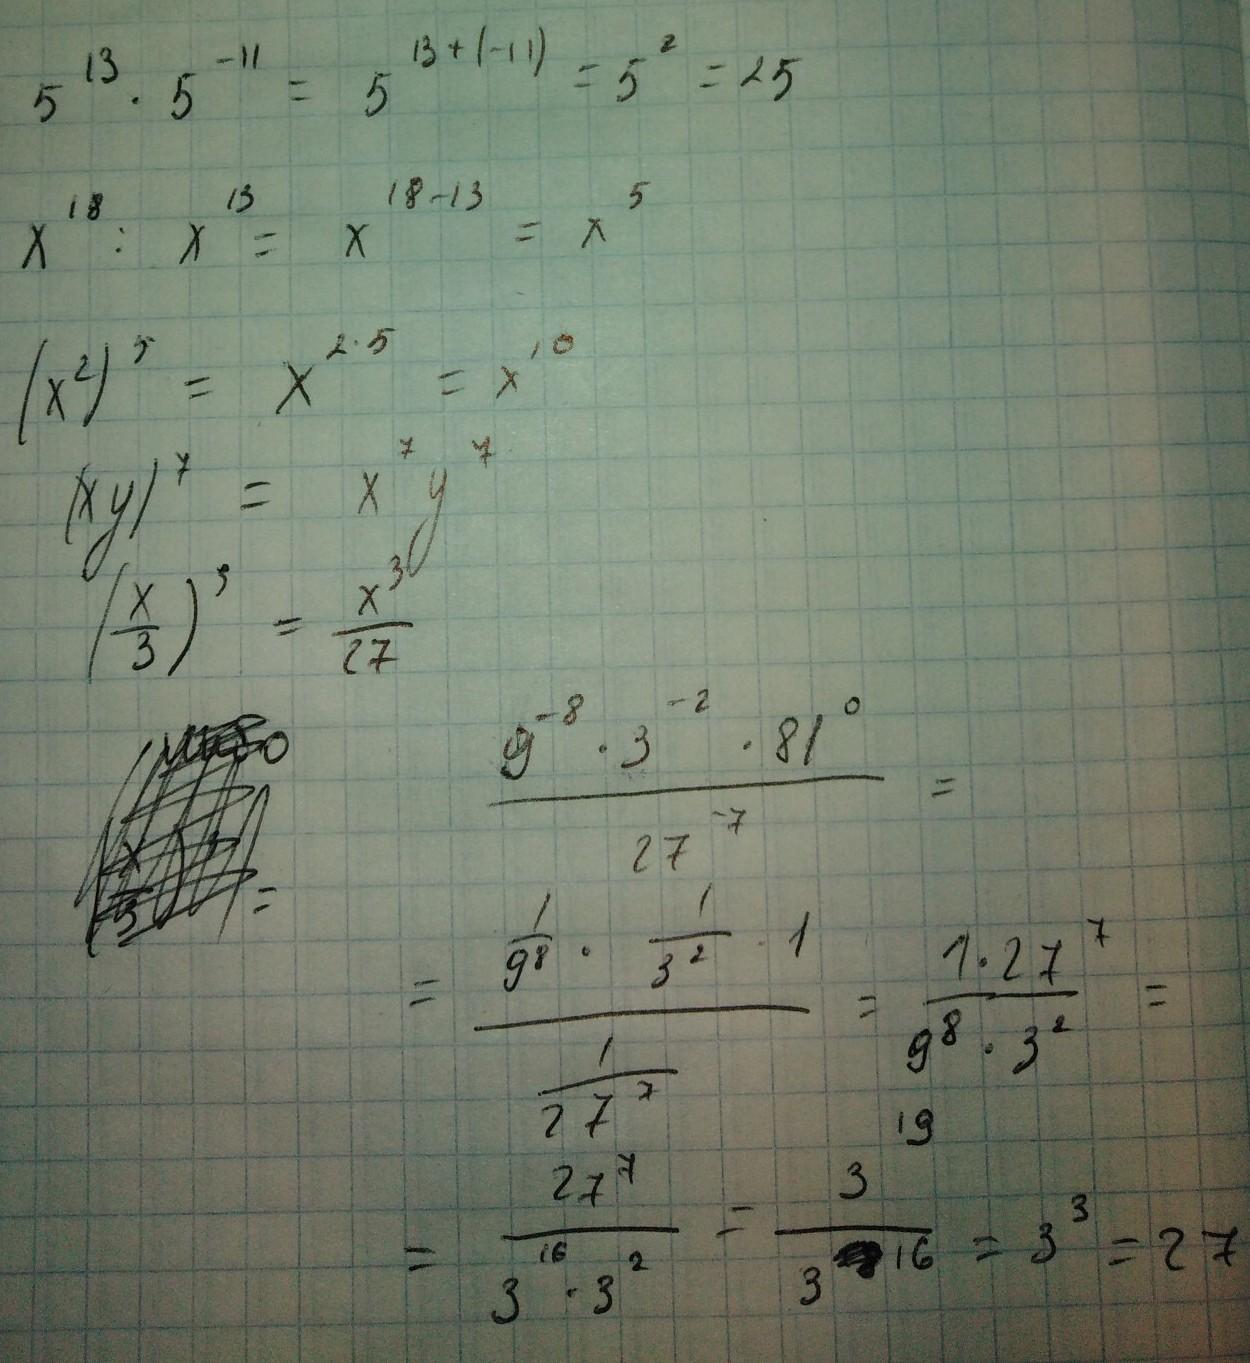 5¹³ · 5⁻¹¹ = 5¹³⁺⁽⁻¹¹⁾ = 5² = 25
x¹⁸ : x¹³ = x¹⁸⁻¹³ = x⁵
(x²)⁵ = x^(2·5) = x¹⁰
(xy)⁷ = x⁷y⁷
(x/3)³ = x³/27
(9⁻⁸ · 3⁻² · 81⁰)/(27⁻⁷) =
= (1/9⁸ · 1/3² · 1)/(1/27⁷) = (1·27⁷)/(9⁸ · 3²) =
= 27⁷/(3¹⁶ · 3²) = 3¹⁹/3¹⁶ = 3³ = 27